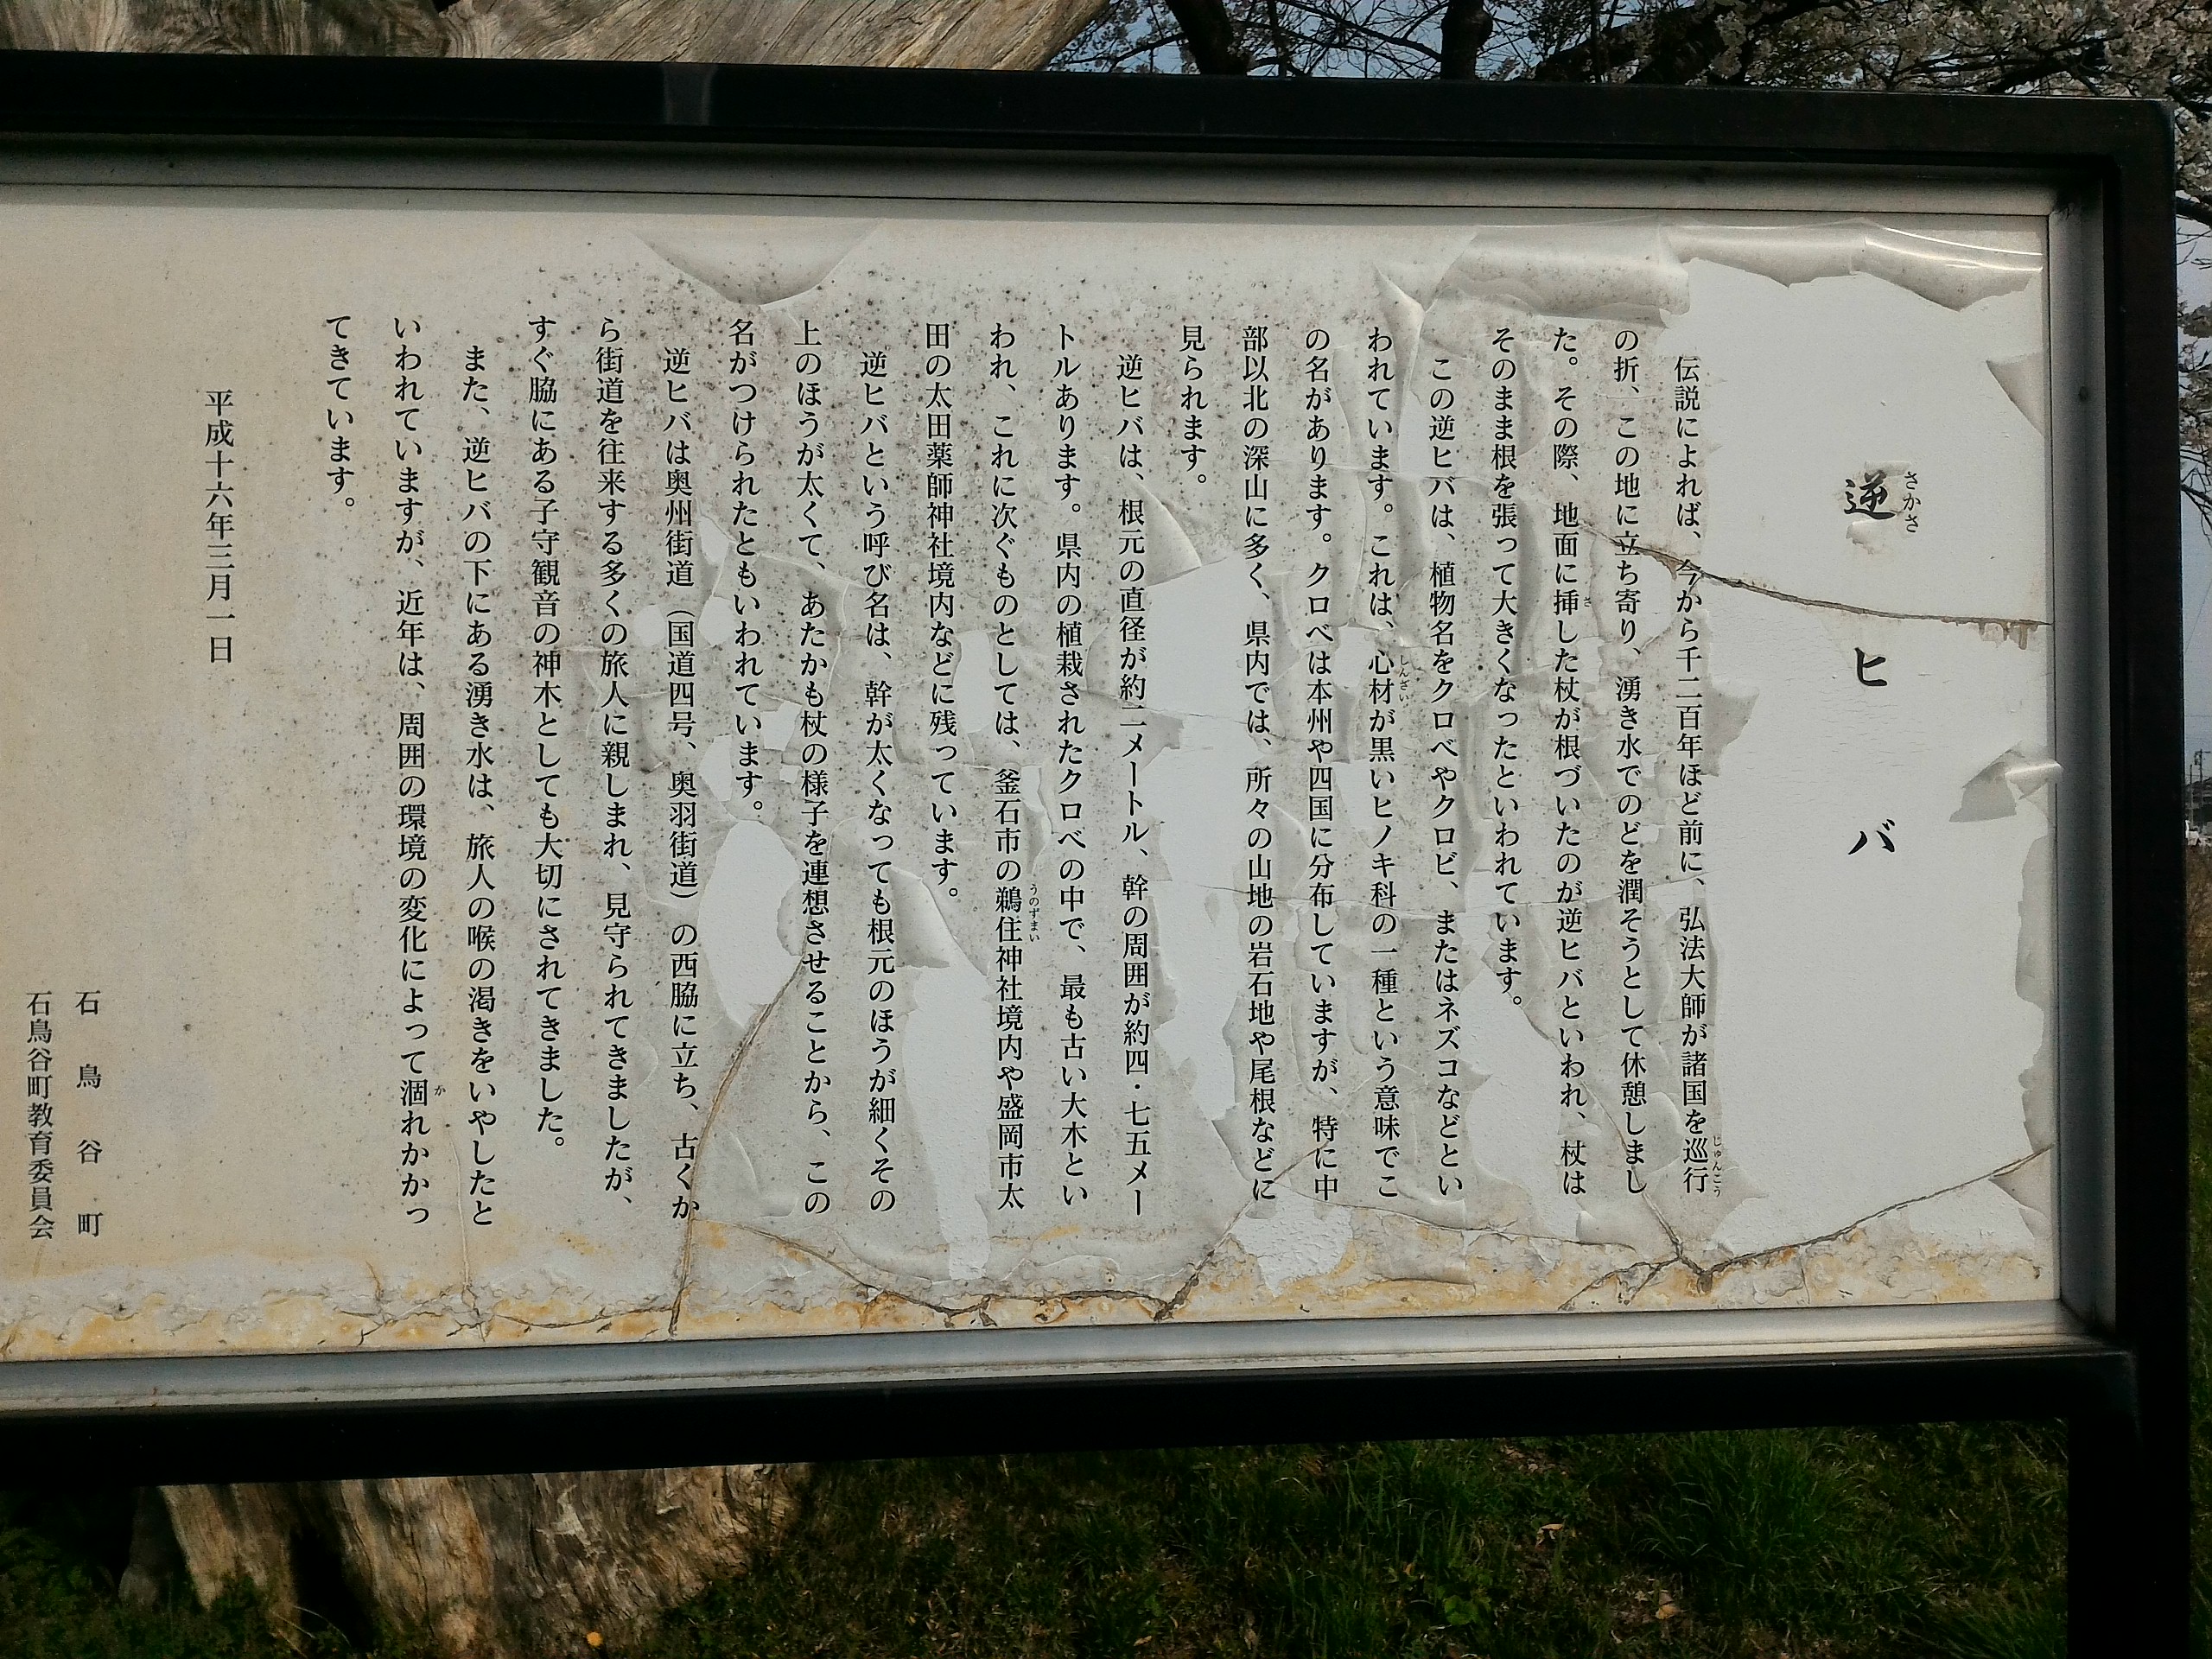 逆ヒバ
さかさ
伝説によれば、今から千二百年ほど前に、弘法大師が諸国を巡行
じゅんこう
の折、この地に立ち寄り、湧き水でのどを潤そうとして休憩しまし
た。その際、地面に挿した杖が根づいたのが逆ヒバといわれ、杖は
さ
そのまま根を張って大きくなったといわれています。
この逆ヒバは、植物名をクロベやクロビ、またはネズコなどとい
われています。これは、心材が黒いヒノキ科の一種という意味でこ
しんざい
の名があります。クロベは本州や四国に分布していますが、特に中
部以北の深山に多く、県内では、所々の山地の岩石地や尾根などに
見られます。
逆ヒバは、根元の直径が約二メートル、幹の周囲が約四・七五メー
トルあります。県内の植栽されたクロベの中で、最も古い大木とい
われ、これに次ぐものとしては、釜石市の鵜住神社境内や盛岡市太
うのずまい
田の太田薬師神社境内などに残っています。
逆ヒバという呼び名は、幹が太くなっても根元のほうが細くその
上のほうが太くて、あたかも杖の様子を連想させることから、この
名がつけられたともいわれています。
逆ヒバは奥州街道（国道四号、奥羽街道）の西脇に立ち、古くか
ら街道を往来する多くの旅人に親しまれ、見守られてきましたが、
すぐ脇にある子守観音の神木としても大切にされてきました。
また、逆ヒバの下にある湧き水は、旅人の喉の渇きをいやしたと
いわれていますが、近年は、周囲の環境の変化によって涸れかかっ
か
てきています。
平成十六年三月一日
石鳥谷町
石鳥谷町教育委員会